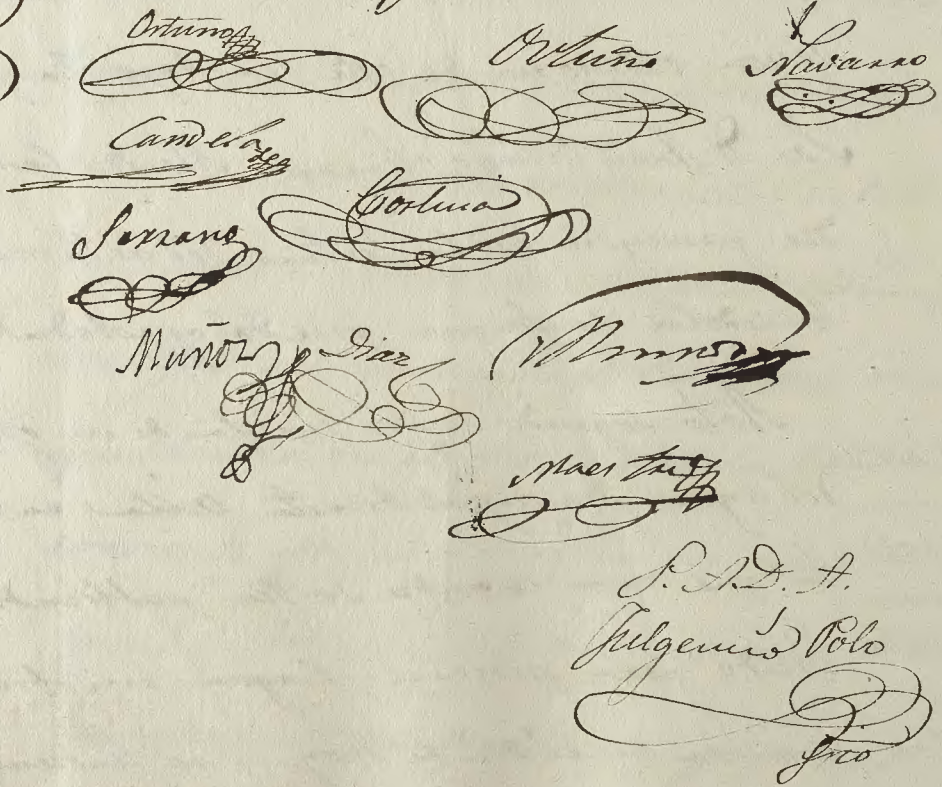 Ortuño Ortuño Navarro
Candela
Cortina
Serrano
Muñoz Diaz Munoz
Maestre
P. A. D. A.
Fulgencio Polo
Srio